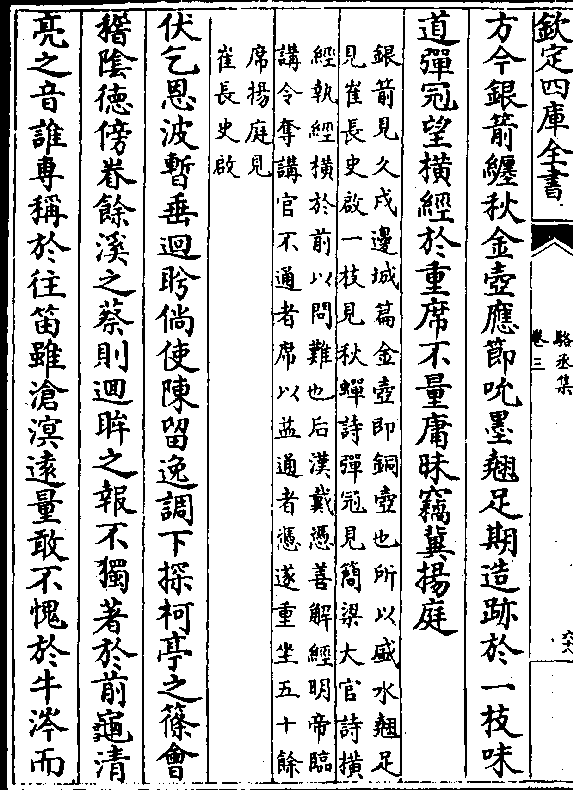 欽定四庫全書
駱丞集
卷三
六十八
方今銀箭纏秋金壺應節吮墨翹足期造跡於一枝味
道彈冠望橫經於重席不量庸昧竊冀揚庭
銀箭見久戍邊城篇金壺即銅壺也所以盛水翹足
見崔長史啟一枝見秋蟬詩彈冠見簡梁大官詩橫
經執經橫於前以問難也后漢戴憑善解經明帝臨
講令奪講官不通者席以益通者憑遂重坐五十餘
席揚庭見
崔長史啟
伏乞恩波暫垂迴盻倘使陳留逸調下探柯亭之篠會
稽陰德傍眷餘溪之蔡則迴眸之報不獨著於前龜清
亮之音誰專稱於往笛雖滄溟遠量敢不愧於牛涔而